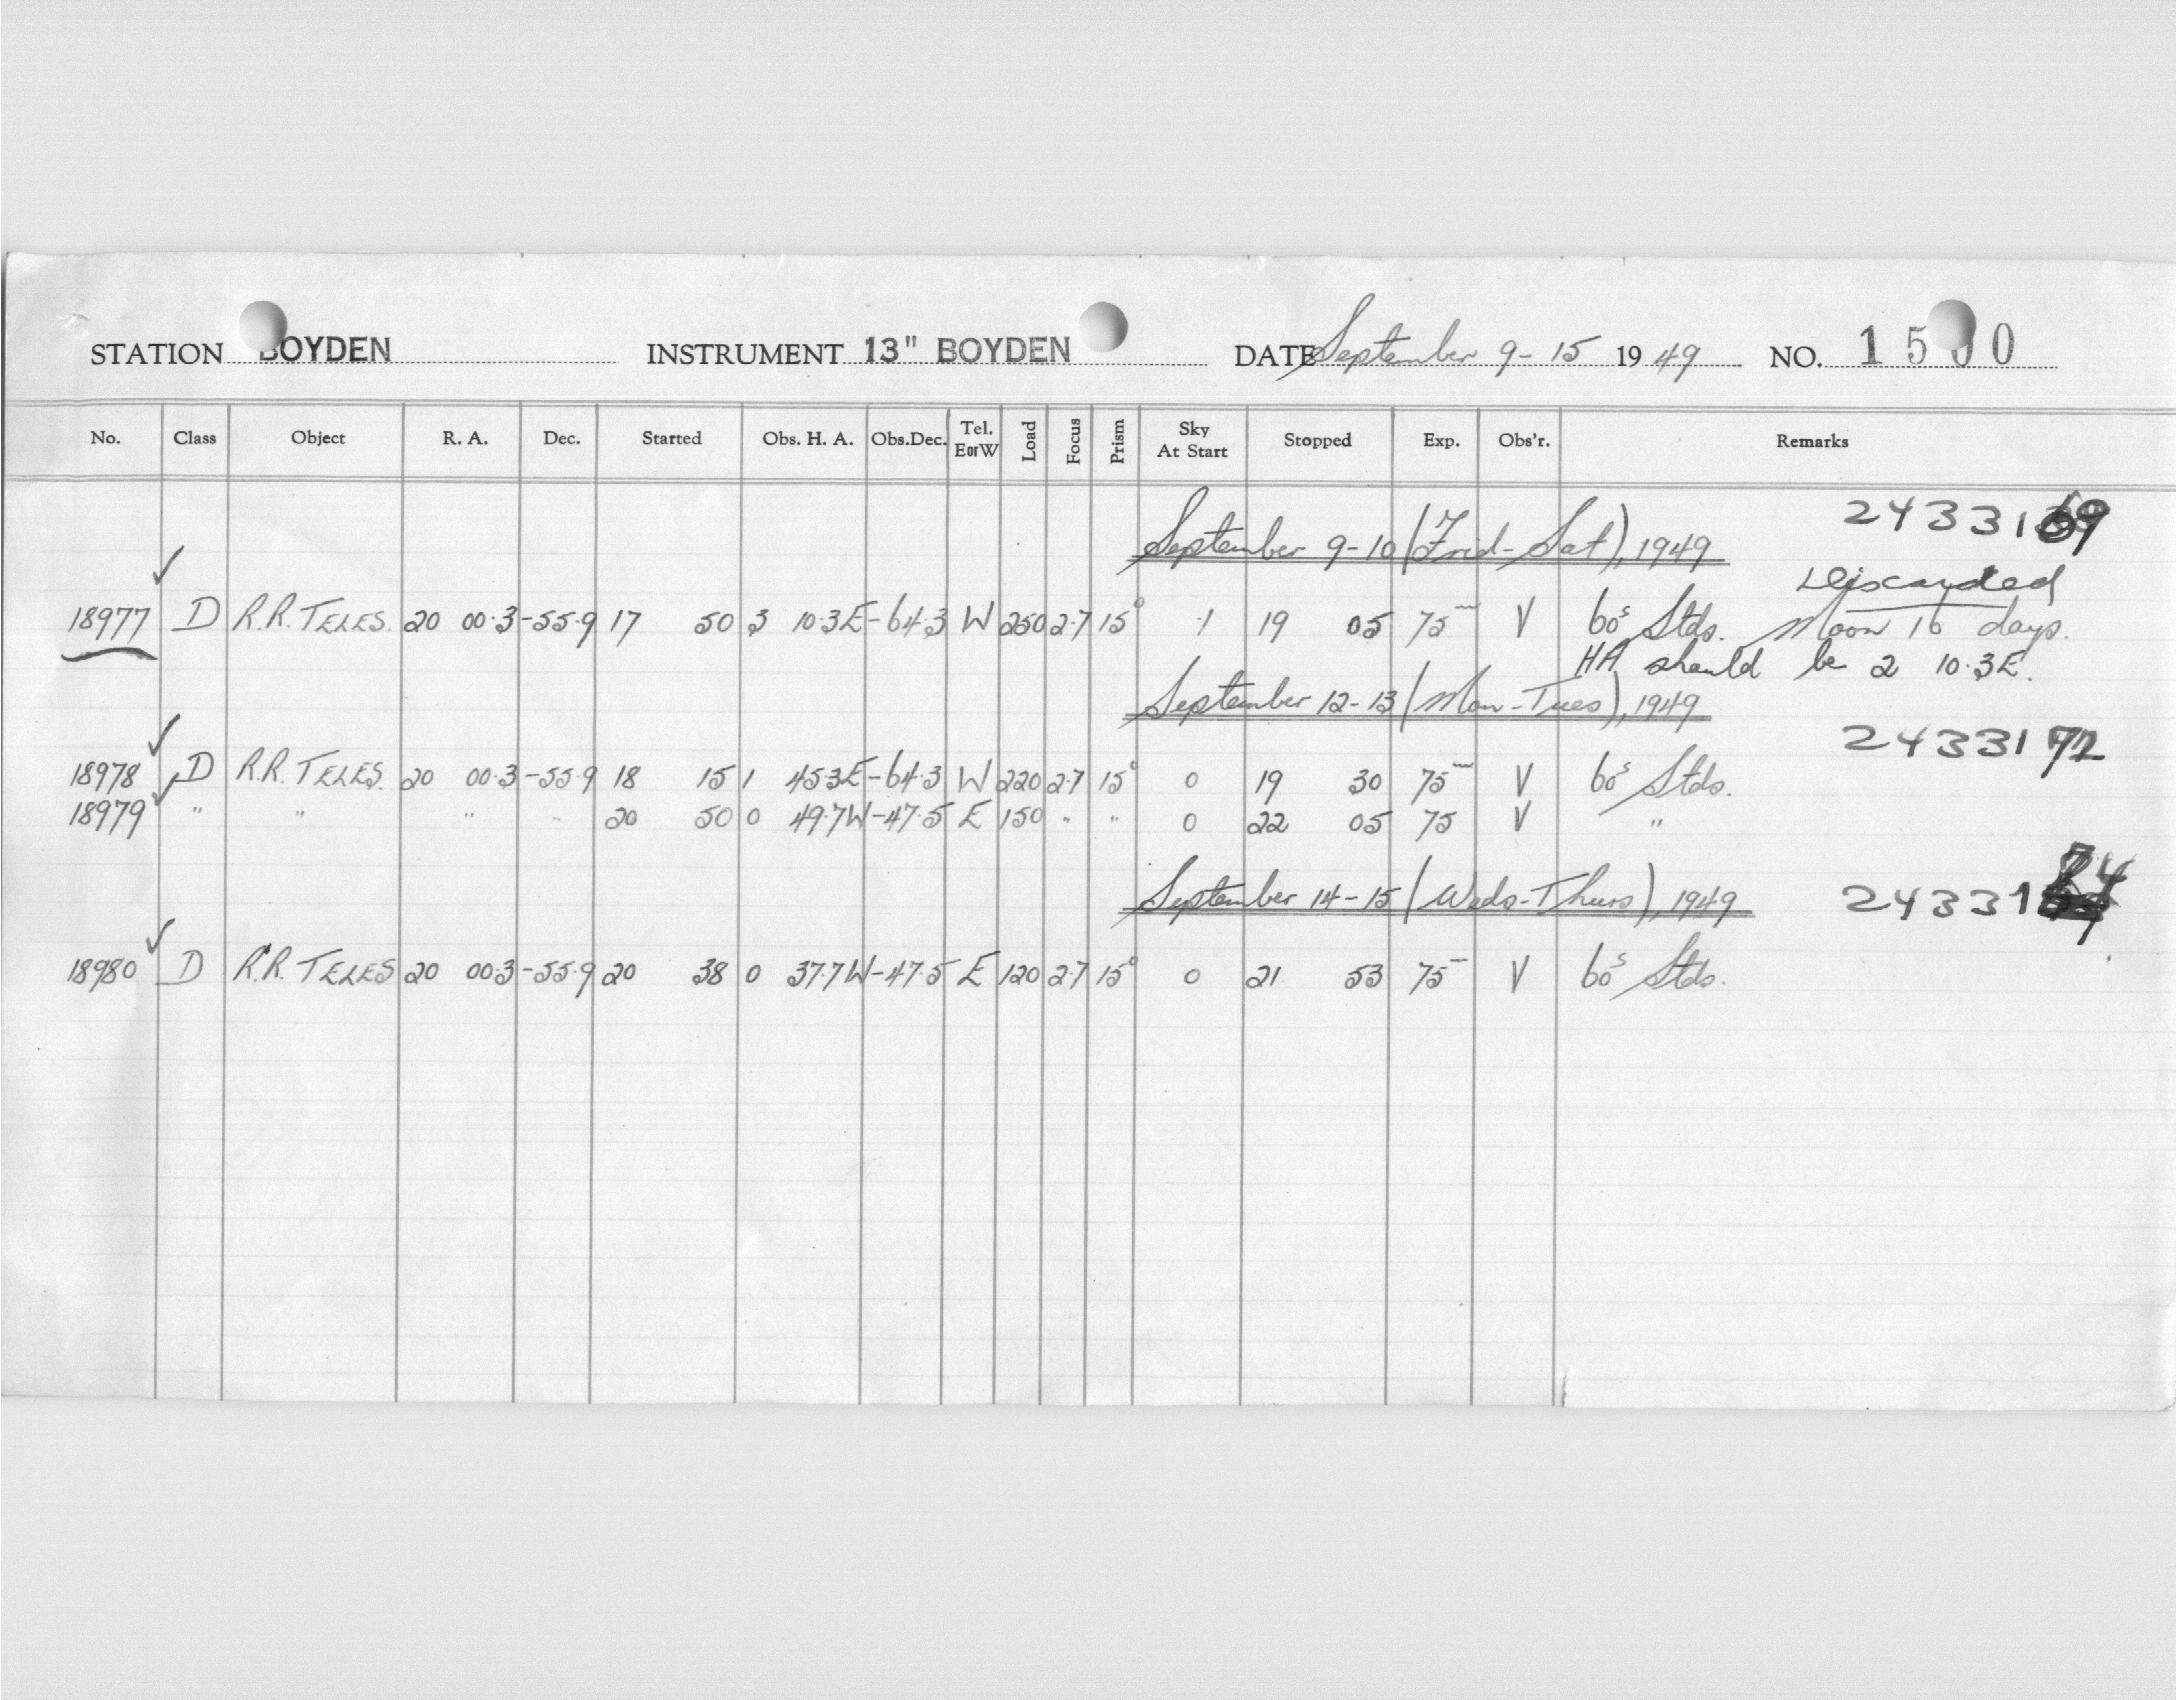 STATION BOYDEN INSTRUMENT 13" BOYDEN DATE September 9-15 1949 NO.
No. Class Object R. A. Dec. Started Obs. H. A. Obs.Dec. Tel. E or W Load Focus Prism Sky At Start Stopped Exp. Obs'r. Remarks
September 9-10 (Frid-Sat), 1949 2433169
Discarded
18977 D R.R. TELES. 20 00.3 -55.9 17 50 3 10.3E -64.3 W 250 2.7 15° .1 19 05 75m V 60s Stds. Moon 16 days.
HA should be 2 10.3E.
September 12-13 (Mon-Tues), 1949
2433172
18978 D R.R. TELES. 20 00.3 -55.9 18 15 1 45.3E -64.3 W 220 2.7 15° 0 19 30 75m V 60s Stds.
18979 " " " " 20 50 0 49.7W -47.5 E 150 " " 0 22 05 75 V "
September 14-15 (Weds-Thurs), 1949 2433174
18980 D R.R. TELES 20 00.3 -55.9 20 38 0 37.7W -47.5 E 120 2.7 15° 0 21 53 75m V 60s Stds.